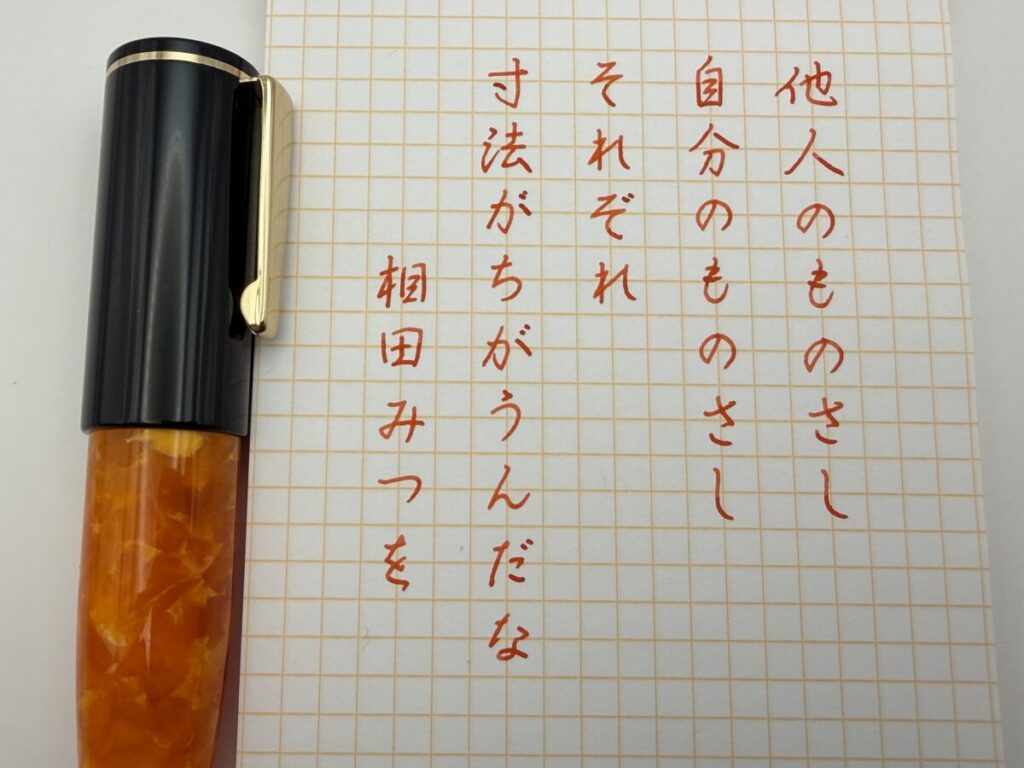 他人のものさし
自分のものさし
それぞれ
寸法がちがうんだな
相田みつを